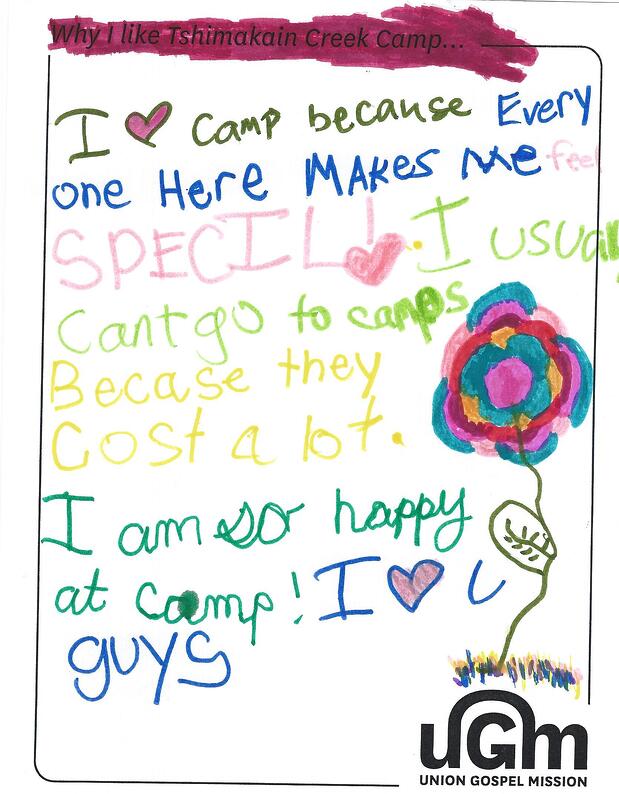 Why I like Tshimakain Creek Camp...
I ♥ camp because Every
one Here MAKes me feel
SPECIL! ♥. I usualy
cant go to camps
Becase they
cost a lot.
I am so happy
at camp! I ♥ U
guys
uGm
UNION GOSPEL MISSION